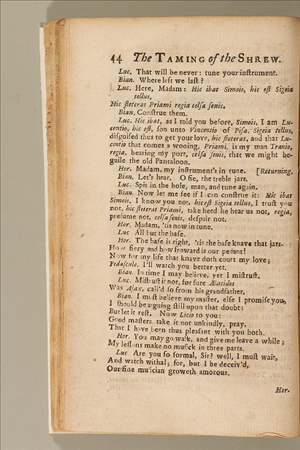 44 The TAMING of the SHREW.
Luc. That will be never: tune your inſtrument.
Bian. Where left we laſt?
Luc. Here, Madam: Hic ibat Simois, hic eſt Sigeia
tellus,
Hic ſteterat Priami regia celſa ſenis.
Bian. Conſtrue them.
Luc. Hic ibat, as I told you before, Simois, I am Lu-
centio, hic eſt, ſon unto Vincentio of Piſa, Sigeia tellus,
diſguiſed thus to get your love, hic ſteterat, and that Lu-
centio that comes a wooing, Priami, is my man Tranio,
regia, bearing my port, celſa ſenis, that we might be-
guile the old Pantaloon.
Hor. Madam, my inſtrument's in tune. [Returning.
Bian. Let's hear. O fie, the treble jars.
Luc. Spit in the hole, man, and tune again.
Bian. Now let me ſee if I can conſtrue it: Hic ibat
Simois, I know you not, hic eſt Sigeia tellus, I truſt you
not, hic ſteterat Priami, take heed he hear us not, regia,
preſume not, celſa ſenis, deſpair not.
Hor. Madam, 'tis now in tune.
Luc. All but the baſe.
Hor. The baſe is right, 'tis the baſe knave that jars.
How fiery and how froward is our pedant!
Now for my life that knave doth court my love;
Pedaſcule, I'll watch you better yet.
Bian. In time I may believe, yet I miſtruſt.
Luc. Miſtruſt it not, for ſure Æacides
Was Ajax, call'd ſo from his grandfather.
Bian. I muſt believe my maſter, elſe I promiſe you,
I ſhould be arguing ſtill upon that doubt:
But let it reſt. Now Licio to you:
Good maſters take it not unkindly, pray,
That I have been thus pleaſant with you both.
Hor. You may go walk, and give me leave a while;
My leſſons make no muſick in three parts.
Luc. Are you ſo formal, Sir? well, I muſt wait,
And watch withal; for, but I be deceiv'd,
Our fine muſician groweth amorous.
Hor.